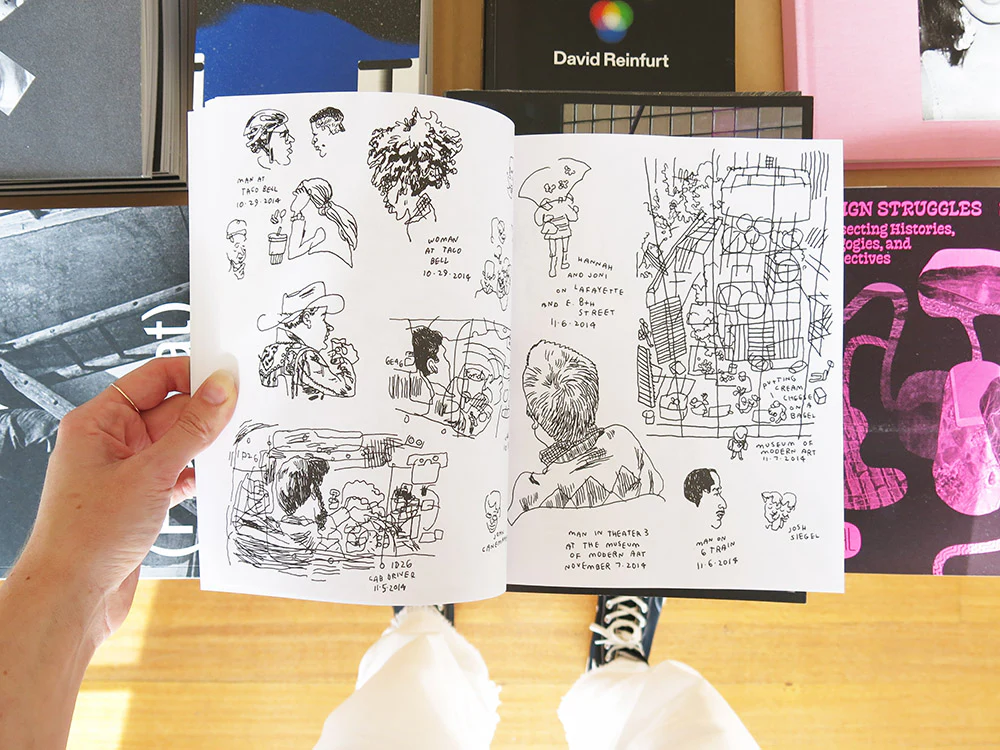 David Reinfurt
IGN STRUGGLES
secting Histories,
gogies, and
pectives
MAN AT
TACO BELL
10·29·2014
WOMAN
AT TACO
BELL
10·29·2014
6E46
1D26
1D26
CAB DRIVER
11·5·2014
HANNAH
AND JONI
ON LAFAYETTE
AND E. 8TH
STREET
11·6·2014
PUTTING
CREAM
CHEESE
ON A
BAGEL
MUSEUM OF
MODERN ART
11·7·2014
MAN IN THEATER 3
AT THE MUSEUM
OF MODERN ART
NOVEMBER 7·2014
MAN ON
6 TRAIN
11·6·2014
JOSH
SIEGEL